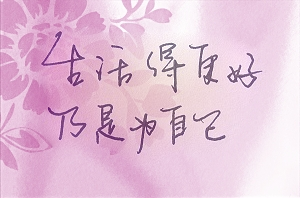 生活得更好
乃是为自己